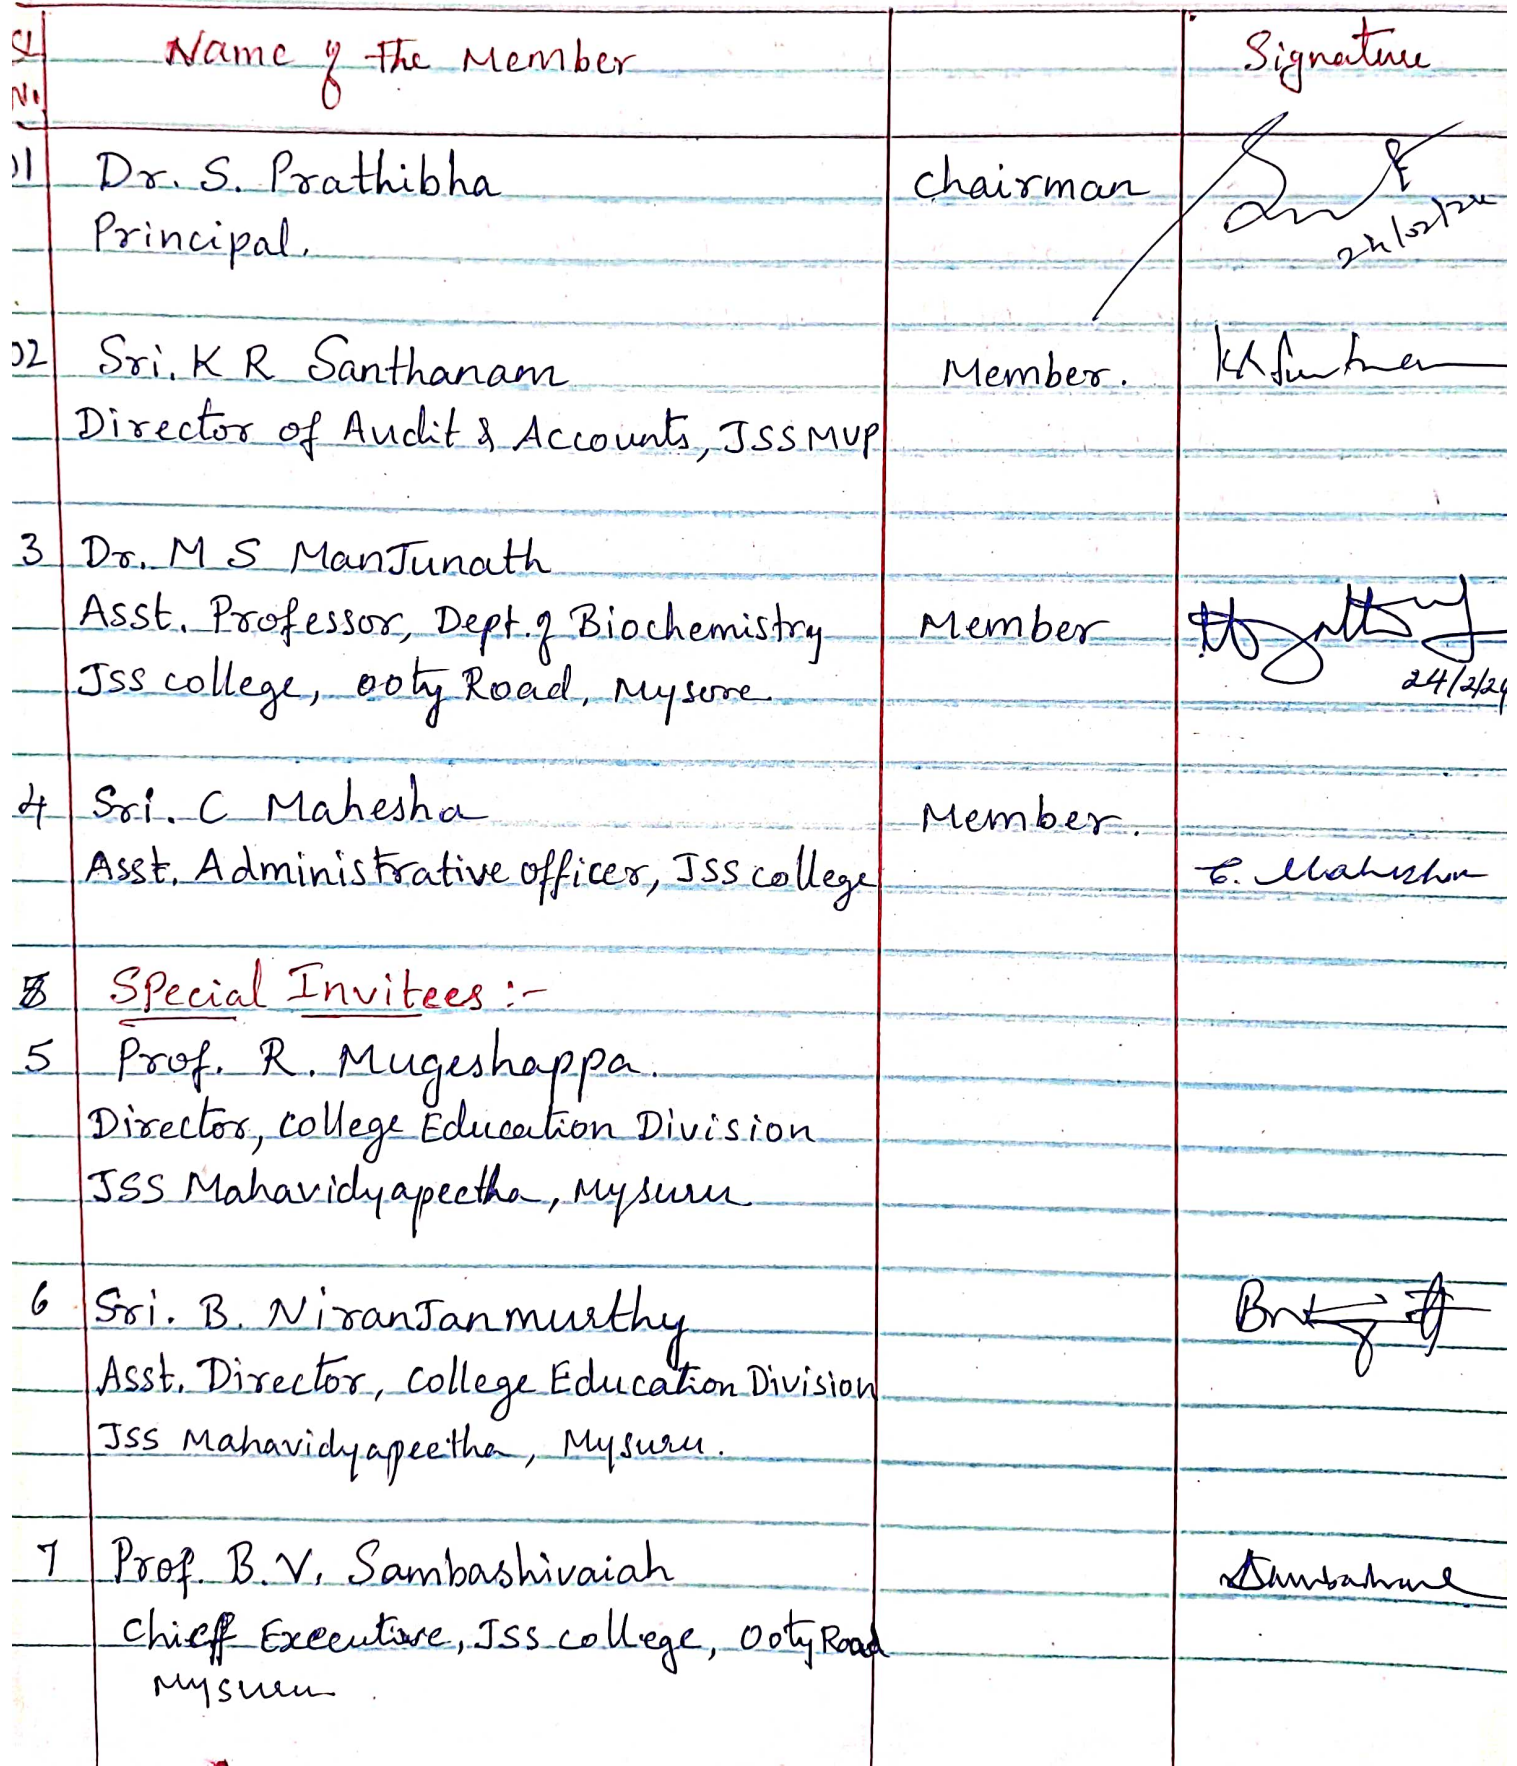 Sl Name of the Member Signature
No.
01 Dr. S. Prathibha Chairman
Principal. 24/02/24
02 Sri. K R Santhanam Member.
Director of Audit & Accounts, JSSMVP
3 Dr. M S ManJunath
Asst. Professor, Dept. of Biochemistry Member
JSS college, ooty Road, Mysore 24/2/24
4 Sri. C Mahesha Member.
Asst. Administrative officer, JSS college C. Mahesha
Special Invitees :-
5 Prof. R. Mugeshappa.
Director, college Education Division
JSS Mahavidyapeetha, Mysuru
6 Sri. B. NiranJanmurthy
Asst. Director, College Education Division
JSS Mahavidyapeetha, Mysuru.
7 Prof. B.V. Sambashivaiah
Chieff Executive, JSS college, Ooty Road
Mysuru.